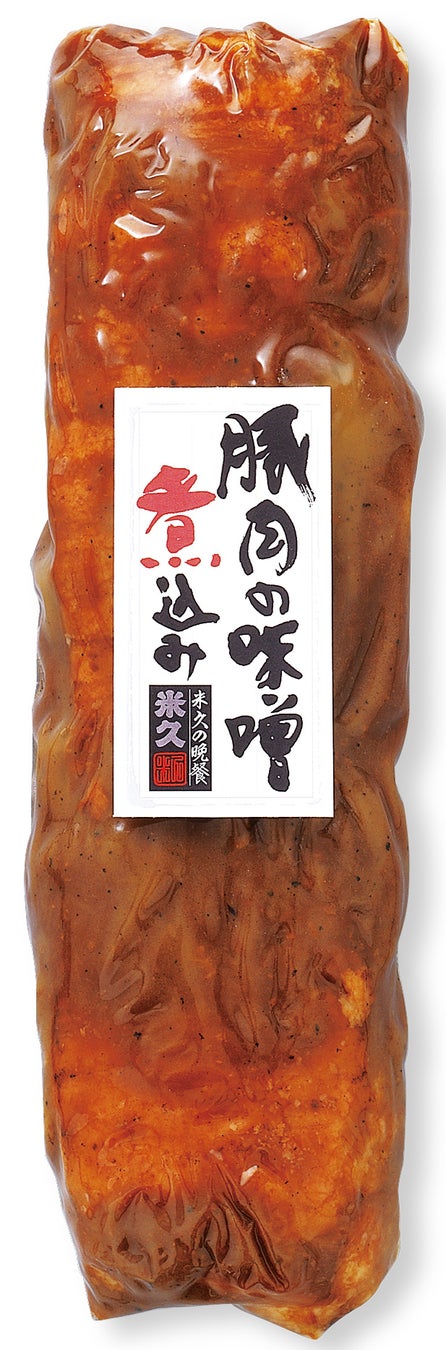 豚肉の味噌
煮込み
米久の晩餐
米久